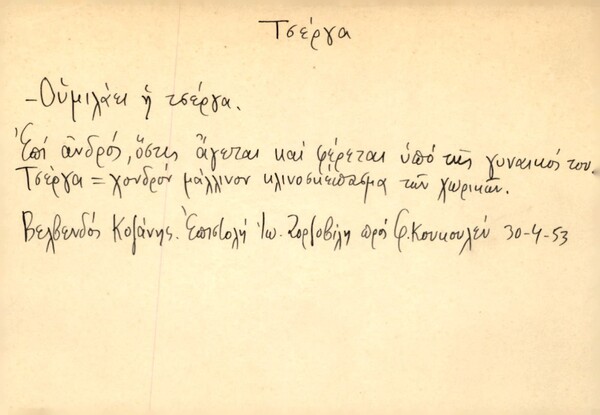 Τσέργα
- Οὑμιλάει ἡ τσέργα.
Ἐπί ἀνδρός, ὅστις ἄγεται καί φέρεται ὑπό τῆς γυναικός του.
Τσέργα = χονδρόν μάλλινον κλινοσκέπασμα τῶν χωρικῶν.
Βελβενδός Κοζάνης. Ἐπιστολή Ἰω. πρός Φ. Κουκουλέν 30-4-53